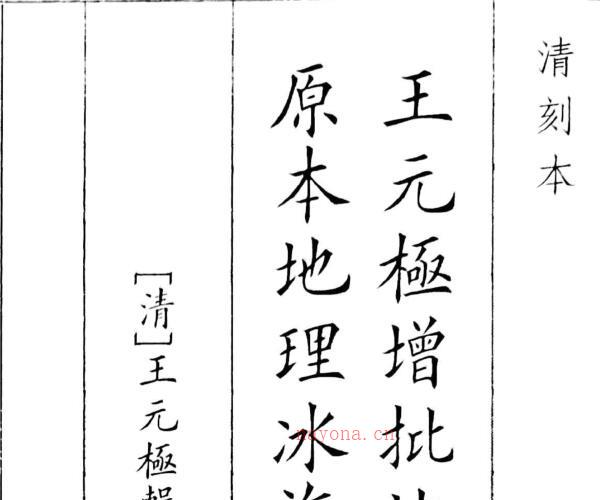 清刻本
王元極增批
原本地理冰
[清]王元極
nayona.cn